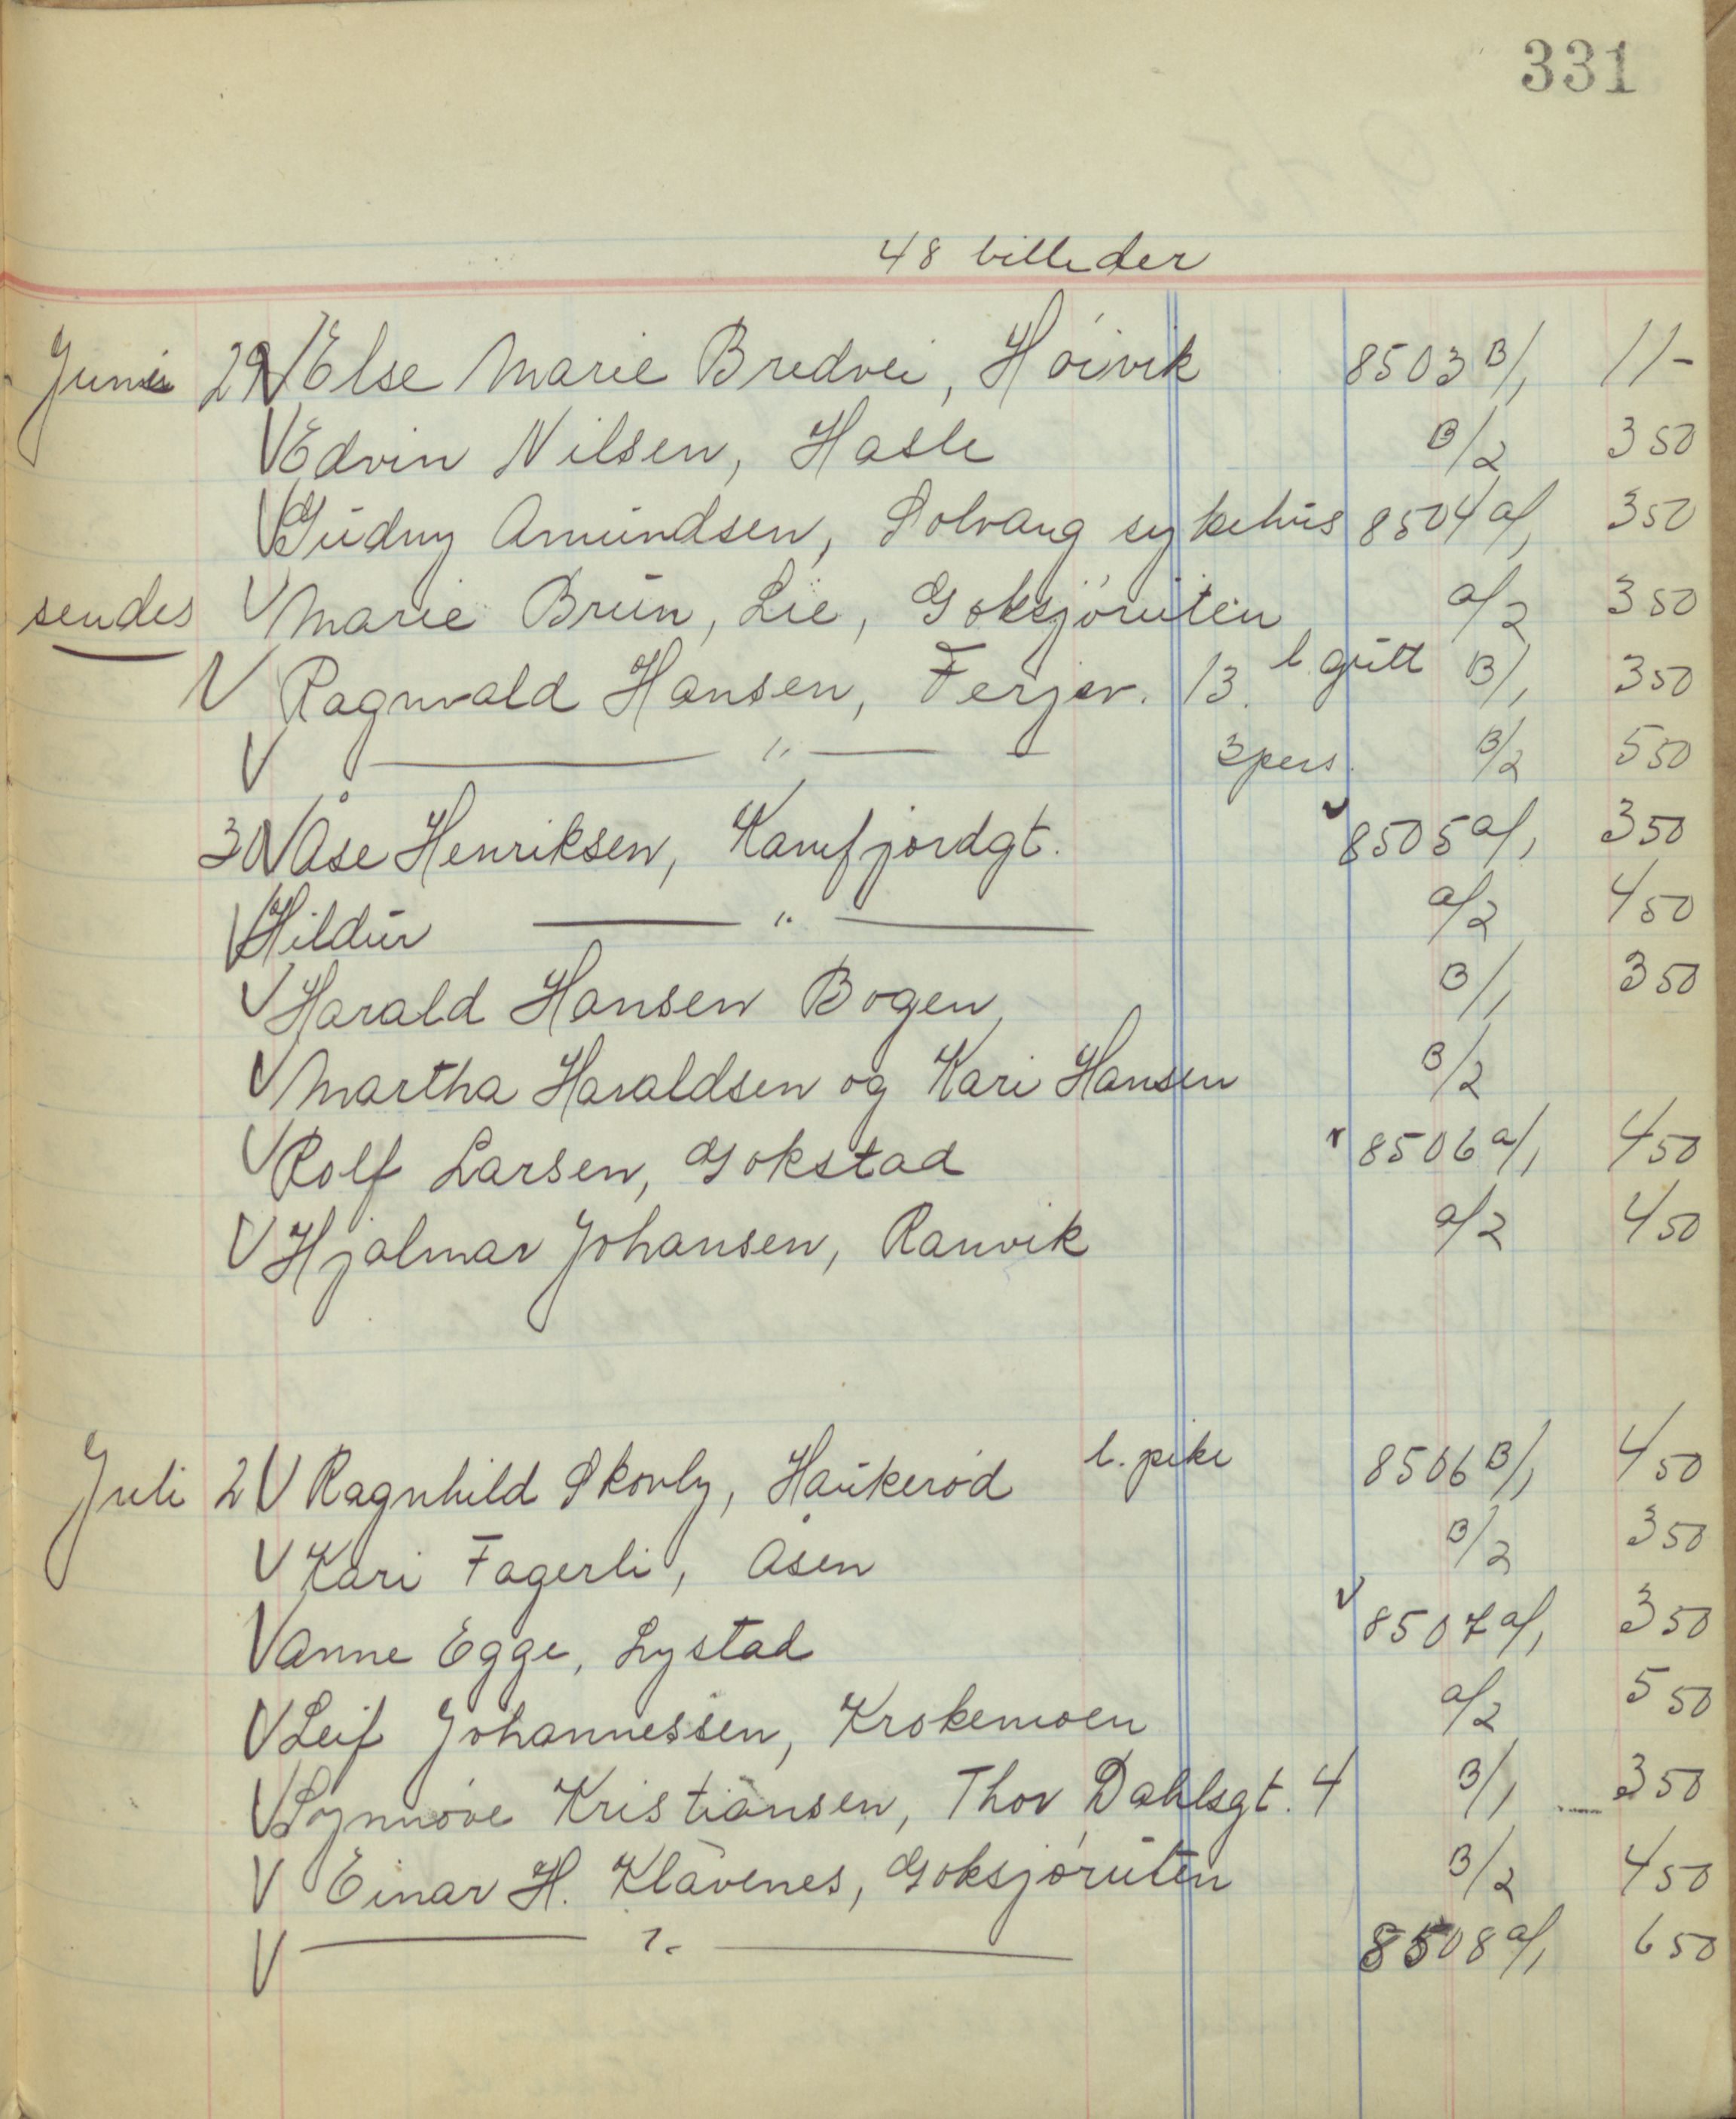 331
48 billeder
Juni 29 V Else Marie Bredvei, Høivik 8503 B/1 11-
V Edvin Nilsen, Hasle B/2 3 50
V Gudny Amundsen, Solvang sykehus 8504 a/1 3 50
sendes V Marie Brun, Lie, Goksjøruten a/2 3 50
V Ragnvald Hansen, Ferjev. 13. l. gutt B/1 3 50
V — " — 3 pers. B/2 5 50
30 V Åse Henriksen, Kamfjordgt. v 8505 a/1 3 50
V Hildur — " — a/2 4 50
V Harald Hansen Bogen, B/1 3 50
V Martha Haraldsen og Kari Hansen B/2
V Rolf Larsen, Gokstad v 8506 a/1 4 50
V Hjalmar Johansen, Ranvik a/2 4 50
Juli 2 V Ragnhild Skovly, Haukerød l. pike 8506 B/1 4 50
V Kari Fagerli, Åsen B/2 3 50
V Anne Egge, Lystad v 8507 a/1 3 50
V Leif Johannessen, Krokemoen a/2 5 50
V Synnøve Kristiansen, Thor Dahlsgt. 4 B/1 3 50
V Einar H. Klavenes, Goksjøruten B/2 4 50
V — " — 8508 a/1 6 50